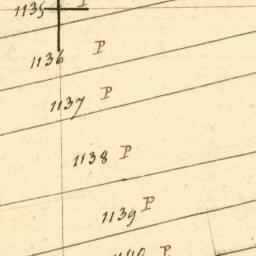 1135 P
1136 P
1137 P
1138 P
1139 P
1140 P